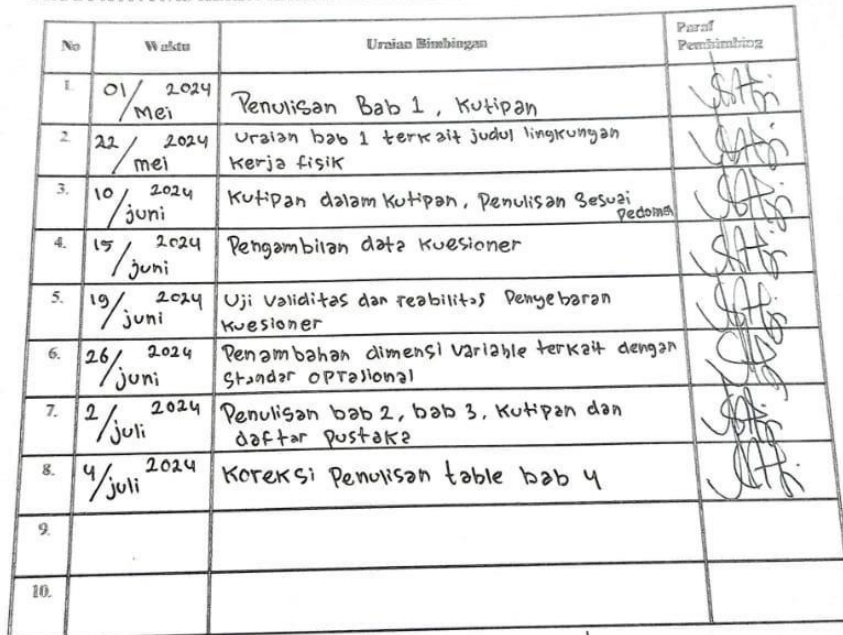 No Waktu Uraian Bimbingan Paraf
Pembimbing
1. 01/Mei 2024 Penulisan Bab 1, Kutipan
2. 22/mei 2024 Uraian bab 1 terkait judul lingkungan
kerja fisik
3. 10/juni 2024 Kutipan dalam Kutipan, Penulisan Sesuai
Pedoman
4. 15/juni 2024 Pengambilan data Kuesioner
5. 19/juni 2024 Uji Validitas dan reabilitas Penyebaran
Kuesioner
6. 26/juni 2024 Penambahan dimensi Variable terkait dengan
Standar OPTasional
7. 2/juli 2024 Penulisan bab 2, bab 3, Kutipan dan
daftar Pustaka
8. 4/juli 2024 Koreksi Penulisan table bab 4
9.
10.